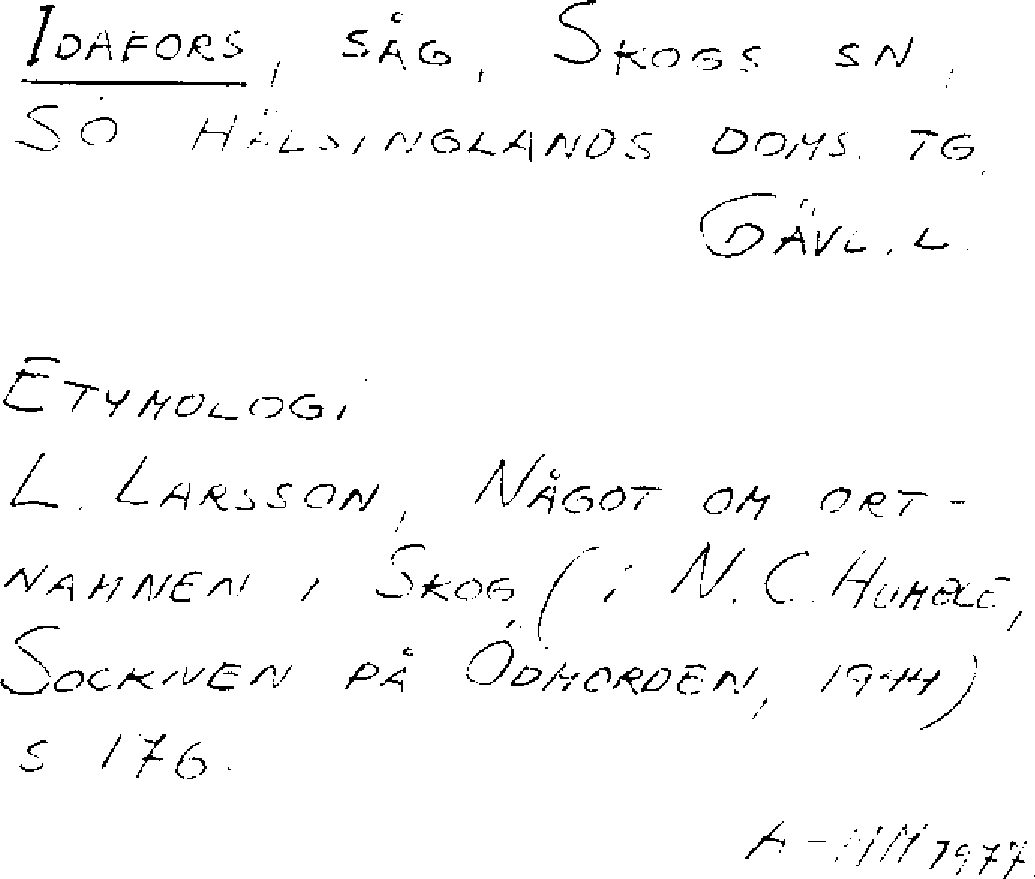 IDAFORS, SÅG, SKOGS SN,
SÖ HÄLSINGLANDS DOMS. TG.
GÄVL. L.
ETYMOLOGI
L. LARSSON, NÅGOT OM ORT-
NAMNEN I SKOG (i N. C. HUMBLE,
SOCKNEN PÅ ÖDMORDEN, 1944)
S 176.
A-MM 1977.